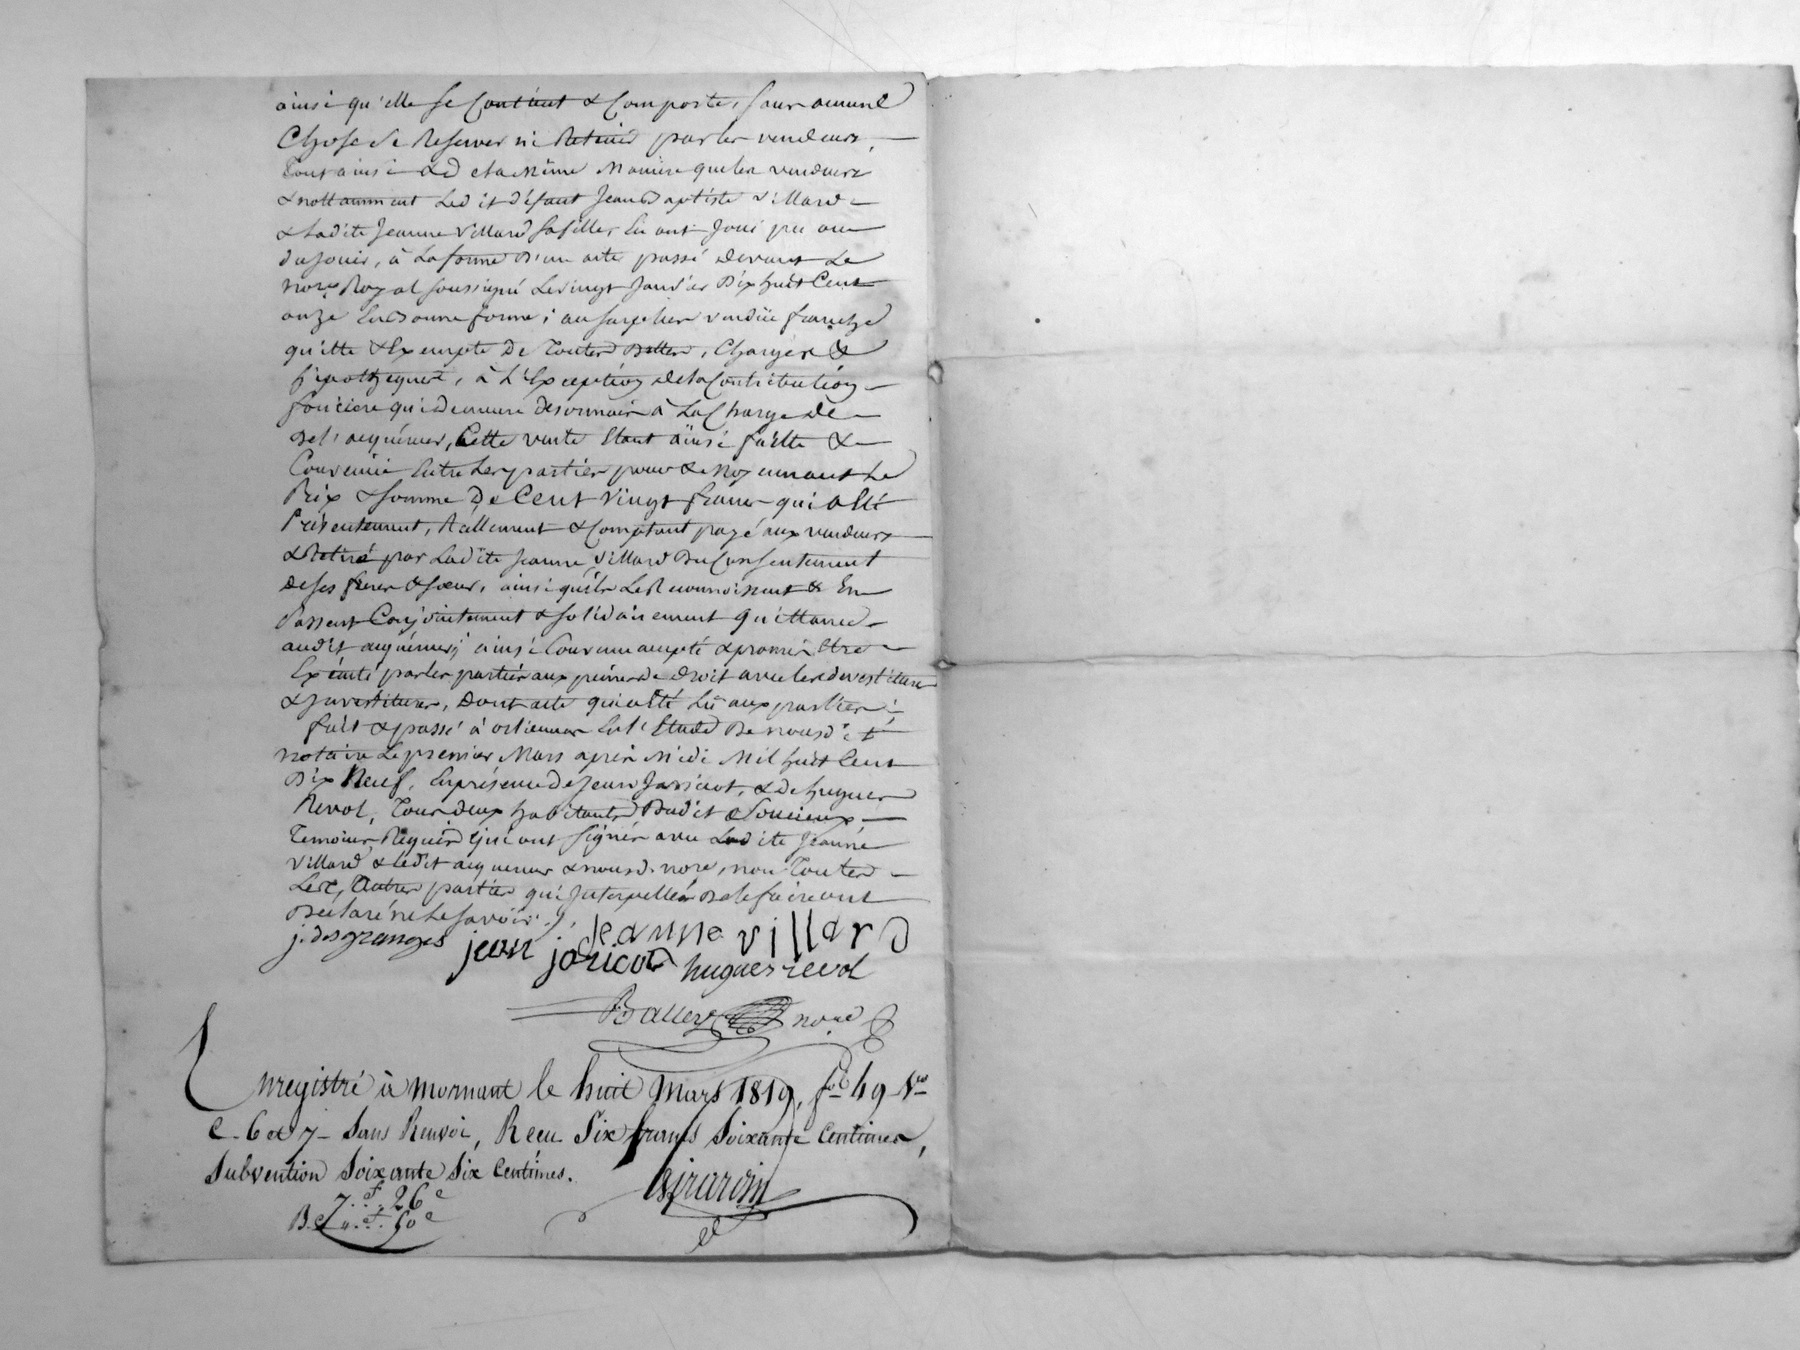 ainsi qu'elle se Contient & Comporte, sans aucune
Chose se Reserver ni Retenir par les vendeurs,
Tout ainsi & de la même Maniere que les vendeurs
& nottamment Led it défunt Jean Baptiste Villard
& Ladite Jeanne Villard sa fille, En ont Joui pu ou
du Jouir, à La forme D'un acte passé devant Le
nore Royal soussigné Le vingt Janvier Dix huit Cent
onze En Bonne forme; au surplus vendüe franche
quitte & Exempte De Toutes Dettes, Charges &
hipotheques, à L'Exception de la Contribution
fonciere qui demeure desormais à La Charge de
De l'acquéreur, Cette vente Etant äinsi faitte &
Convenüe Entre Les parties pour & Moyennant Le
Prix & somme De Cent Vingt francs qui a Eté
Présentement, Réellement & Comptant payé aux vendeurs
& Retiré par Ladite Jeanne Villard Du Consentement
de ses frères & sœur, ainsi qu'ils Le Reconnoissent & En
Passent Conjointement & solidairement Quittance
audit acquéreur; ainsi Convenu accepté & promis Etre
Exécuté par les parties aux peines de Droit avec les devestitures
& investitures, Dont acte qui a Eté Lû aux parties;
fait & passé à orlienas En l'Etude De nousdit
notaire Le premier Mars après Midi Mil huit Cent
Dix Neuf, En présence de Jean Jaricot, & de hugues
Revol, Tous deux habitants Dudit Soucieux
Temoins Requis qui ont signés avec Ladite Jeanne
Villard, & ledit acquereur & nousd. nore, non Toutes
Les Autres parties qui Interpellées De le faire ont
Déclaré ne Le savoir.
j. desgranges jeanne villard
jean jaricot hugues revol
nore
Enregistré à Mornant le huit Mars 1819, fo 49 Vo
C. 6 et 7 Sans Renvoi, Recu Six francs Soixante Centimes,
Subvention Soixante Six Centimes.
Girardin
7.f. 26c